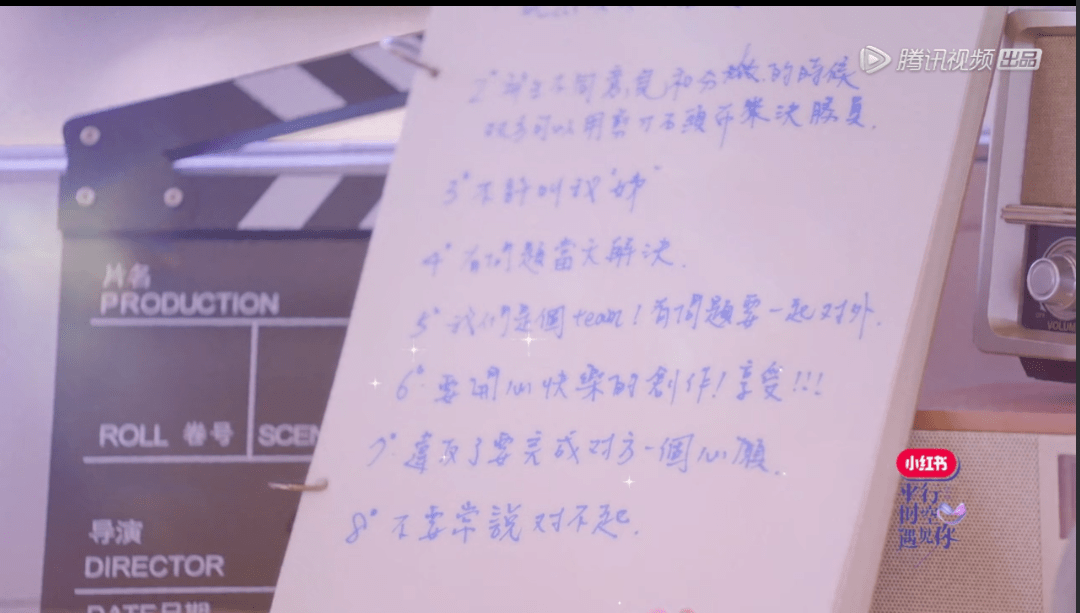 腾讯视频 出品
2° 產生不同意見和分歧的時候
以用剪刀石頭布來決勝負.
3° 不許叫我“姊”
4° 有問題當天解決.
5° 我們是個team!有問題要一起对外.
6° 要開心快樂的創作!享受!!!
7° 違反了要完成对方一個心願.
8° 不要常說对不起.
片名
PRODUCTION
ROLL 卷号
SCEN
导演
DIRECTOR
DATE日期
VOLUM
小红书
平行
时空
遇见你